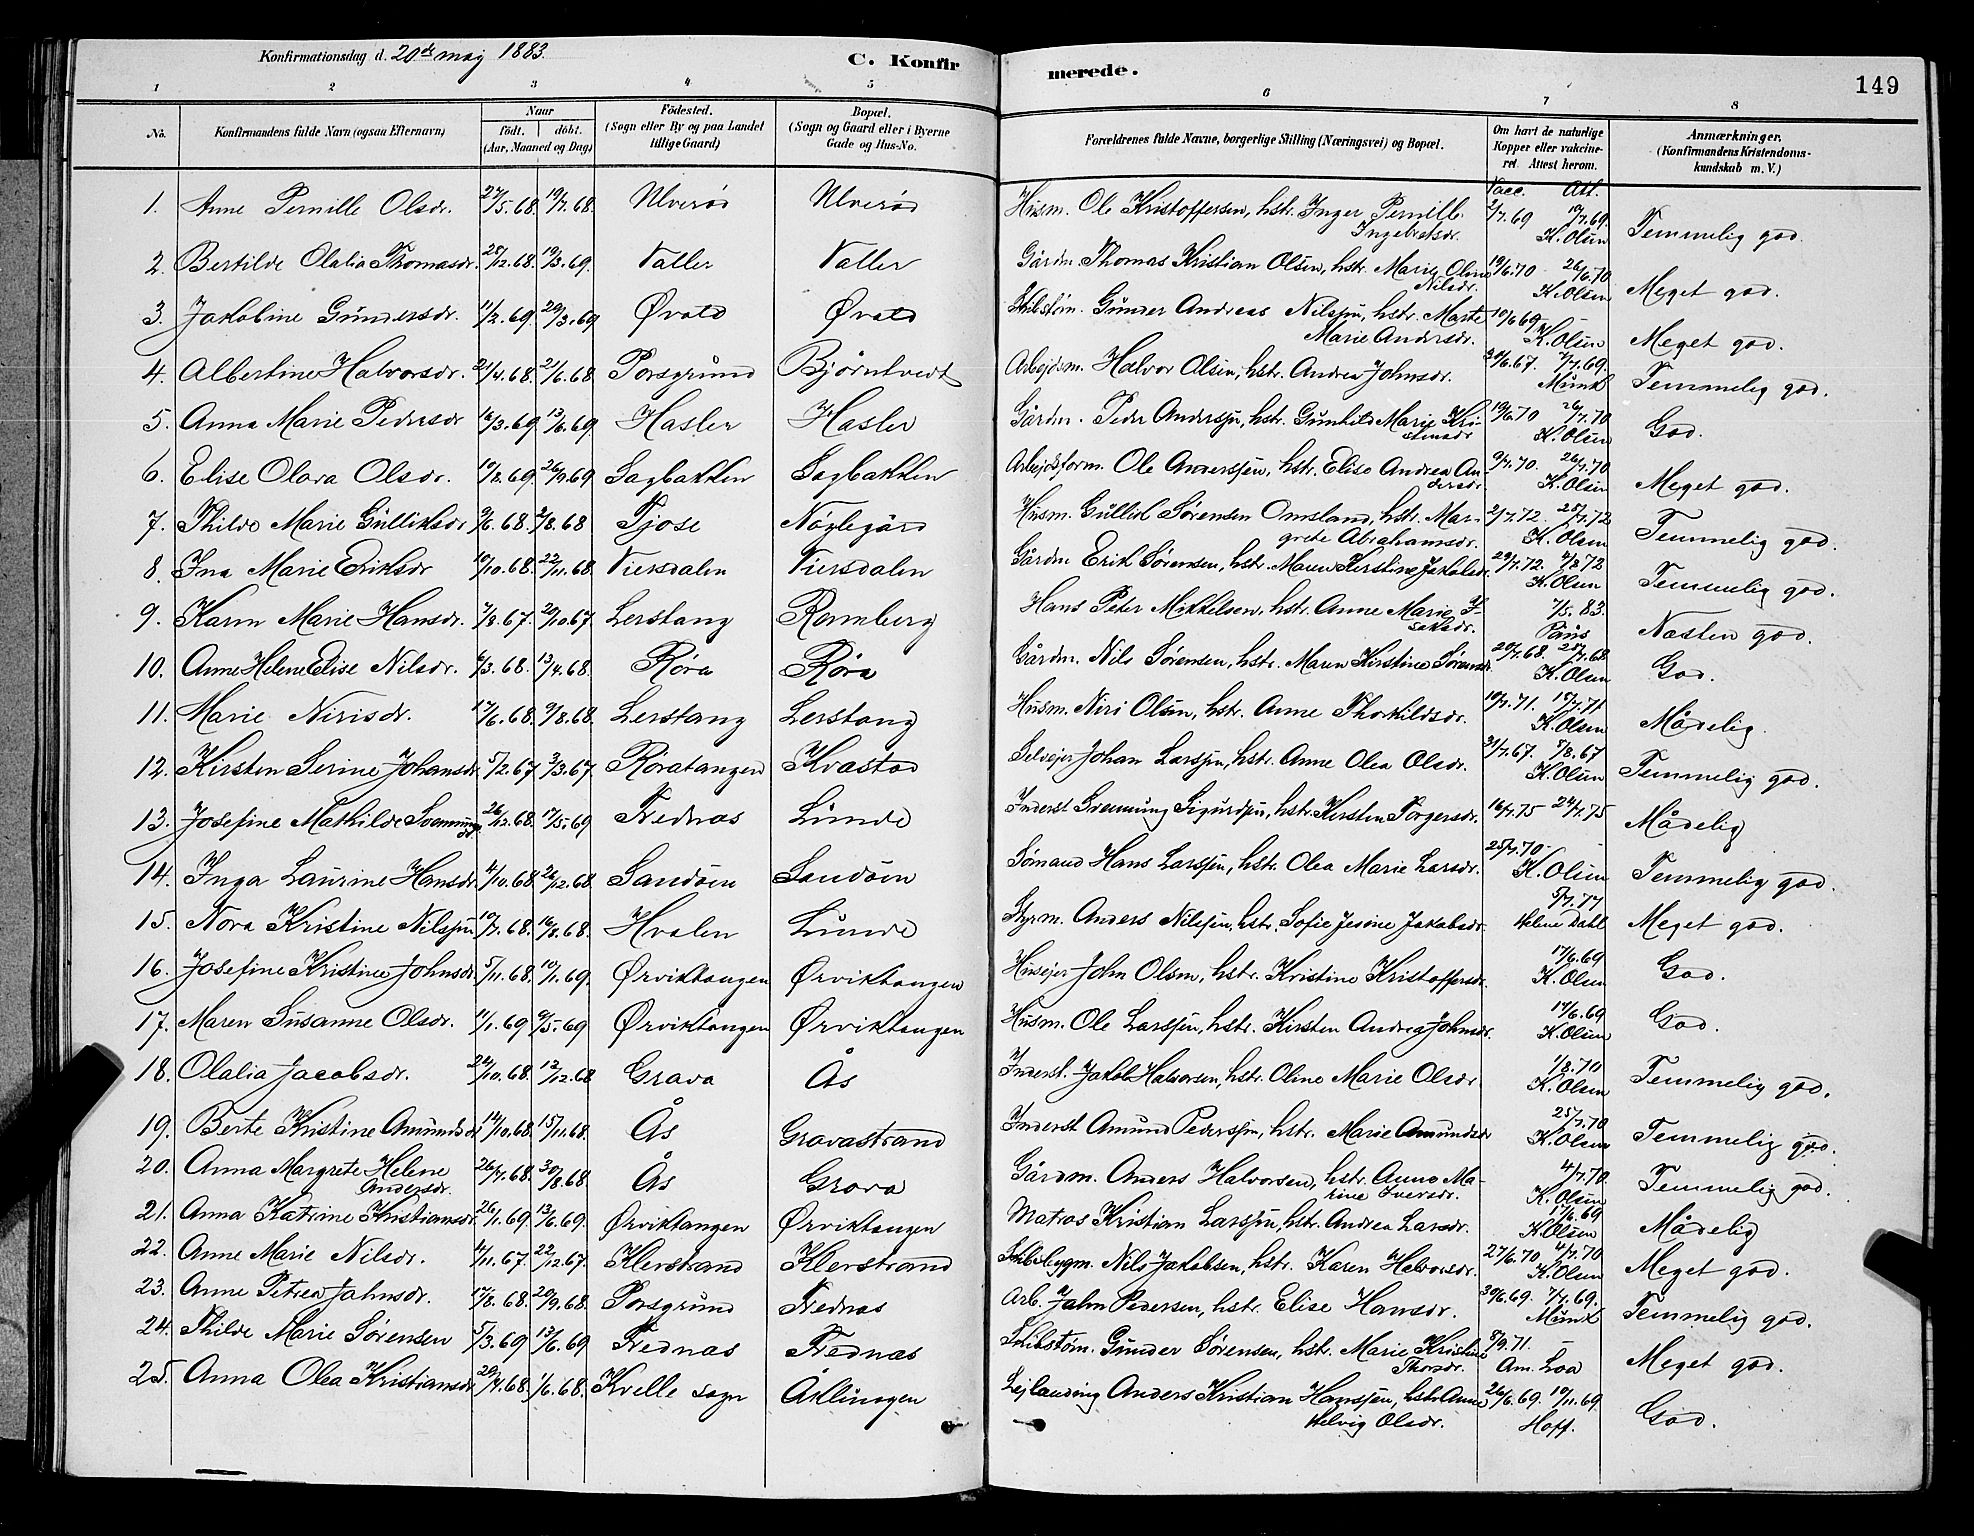 Konfirmationsdag d. 20de maj 1883.
C. Konfirmerede.
149
1 2 3 4 5 6 7 8
No. Konfirmandens fulde Navn (ogsaa Efternavn) Naar födt. döbt. (Aar, Maaned og Dag) Födested. (Sogn eller By og paa Landet tillige Gaard) Bopæl. (Sogn og Gaard eller i Byerne Gade og Hus-No. Forældrenes fulde Navne, borgerlige Stilling (Næringsvei) og Bopæl. Om havt de naturlige Kopper eller vakcineret. Attest herom. Anmærkninger. (Konfirmandens Kristendomskundskab m. V.)
Vacc. Att.
1. Anne Pernille Olsdr. 27/5.68. 19/7.68. Ulverød Ulverød Husm. Ole Kristoffersen, hstr. Inger Pernille Ingebretsdr. 2/7.69 10/7.69. K. Olsen Temmelig god.
2. Bertilde Olalia Thomasdr. 28/12.68. 19/3.69. Valler Valler Gårdm. Thomas Kristian Olsen, hstr. Marie Oline Nilsdr. 19/6.70 26/6.70 K. Olsen Meget god.
3. Jakobine Gundersdr. 11/2.69. 29/3.69 Øvald Øvald Skibstøm. Gunder Andreas Nilssen, hstr. Marte Marie Andersdr. 10/6 69 K. Olsen Meget god.
4. Albertine Halvorsdr. 21/4.68. 21/6.68. Porsgrund Bjørntvedt Arbejdsm. Halvor Olsen, hstr. Andrea Johnsdr. 30/6.67. 7/7.69. Munk Temmelig god.
5. Anna Marie Pedersdr 18/3.69 13/6.69. Hasler Hasler Gårdm. Peder Anderssen, hstr. Gunhild Marie Kristensdr 19/6.70 26/7.70 K. Olsen God.
6. Elise Olava Olsdr. 19/8.69. 26/9.69 Sagbakken Sagbakken Arbejdsform. Ole Anderssen, hstr. Elise Andrea Andersdr. 9/7.70. 26/7.70 K. Olsen Meget god.
7. Thilde Marie Gulliksdr 9/6.68. 2/8.68 Tjose Nøglegård Husm. Gullik Sørensen Omsland, hstr. Margrete Abrahamsdr. 2/7.72. 25/7.72 K. Olsen Temmelig god.
8. Ina Marie Eriksdr 10/10.68. 22/11.68. Viersdalen Viersdalen Gårdm Erik Sørensen, hstr. Maren Kirstine Jakobsdr. 29/7.72. 4/8 72 K. Olsen Temmelig god.
9. Karen Marie Hansdr. 7/8.67. 20/10.67. Lerstang Ramberg Hans Peter Mikkelsen, hstr. Anne Marie Isaksdr. 7/5.83. Paus Næsten god.
10. Anne Helene Elise Nilsdr. 4/3.68. 13/4.68. Röra Röra Gårdm. Nils Sørensen, hstr. Maren Kirstine Sørensdr. 20/7.68. 28/7.68 K. Olsen God.
11. Marie Nirisdr. 17/6.68. 9/8.68. Lerstang Lerstang Husm. Niri Olsen, hstr. Anne Thorkildsdr. 10/7.71. 18/7.71 K. Olsen Mådelig.
12. Kirsten Serine Johansdr. 5/2.67. 3/3.67. Röratangen Kvastad Selvejer Johan Larssen, hstr. Anne Olea Olsdr. 31/7.67. 5/8.67 K. Olsen Temmelig god.
13. Josefine Mathilde Svennungsdr. 26/12.68. 17/5.69 Frednæs Lunde Inderst Svennung Sigurdsen, hstr. Kirsten Torgersdr. 16/7.75 24/7.75 Mådelig
14. Inga Laurine Hansdr. 4/10.68. 26/12.68. Sandøen Sandøen Sømand Hans Larssen, hstr. Olea Marie Larsdr. 25/7.70. K. Olsen Temmelig god.
15. Nora Kristine Nilssen. 10/7.68. 16/8.68. Hvalen Lunde Styrm. Anders Nilssen, hstr. Sofie Jesine Jakobsdr. 5/7.77 Helene Dahl Meget god.
16. Josefine Kristine Johnsdr. 5/11.68. 10/1.69. Ørviktangen Ørviktangen Husejer John Olsen, hstr. Kristine Kristoffersdr. 17/6.69 K. Olsen God.
17. Maren Susanne Olsdr. 11/1.69 9/5.69 Ørviktangen Ørviktangen Husm. Ole Larssen, hstr. Kirsten Andrea Johnsdr. 17/6.69 K. Olsen God.
18. Olalia Jacobsdr. 24/10.68. 12/12.68 Grava Ås Inderst. Jakob Halvorsen, hstr. Oline Marie Olsdr 1/8.70 K. Olsen Temmelig god.
19. Berte Kristine Amundsdr 14/10.68. 15/11.68. Ås Gravastrand Inderst Amund Pederssen, hstr. Marie Amundsdr 25/7.70 K. Olsen Temmelig god.
20. Anna Margrete Helene Andersdr. 26/7.68. 30/8.68 Ås Grava Gårdm. Anders Halvorsen, hstr. Anne Marine Iversdr. 4/7.70 K. Olsen Temmelig god.
21. Anna Katrine Kristiansdr. 26/1.69. 13/6.69. Ørviktangen Ørviktangen Matros Kristian Larssen, hstr. Andrea Larsdr. 17/6.69 K. Olsen Mådelig
22. Anne Marie Nilsdr. 4/11.67. 22/12.67. Klevstrand Klevstrand Skibsbygm. Nils Jakobsen, hstr. Karen Halvorsdr. 27/6.70 4/7.70 K. Olsen Meget god.
23. Anne Petrea Jahnsdr. 17/8.68. 20/9.68. Porsgrund Frednæs Arb. Jahn Pedersen, hstr. Elise Hansdr. 30/6.69. 7/7.69. Munk Temmelig god.
24. Thilde Marie Sørensen 5/3.69 13/6.69 Frednæs Frednæs Skibstøm. Gunder Sørensen, hstr. Marie Kristine Thorsdr. 8/9.71. Am. Loa Meget god.
25. Anna Olea Kristiansdr 20/4.68. 1/6.68. Kvelle sogn Åklungen Lejlænding Anders Kristian Hanssen, hstr. Anne Helvig Olsdr. 26/6.69. 10/11.69 Hoff. God.